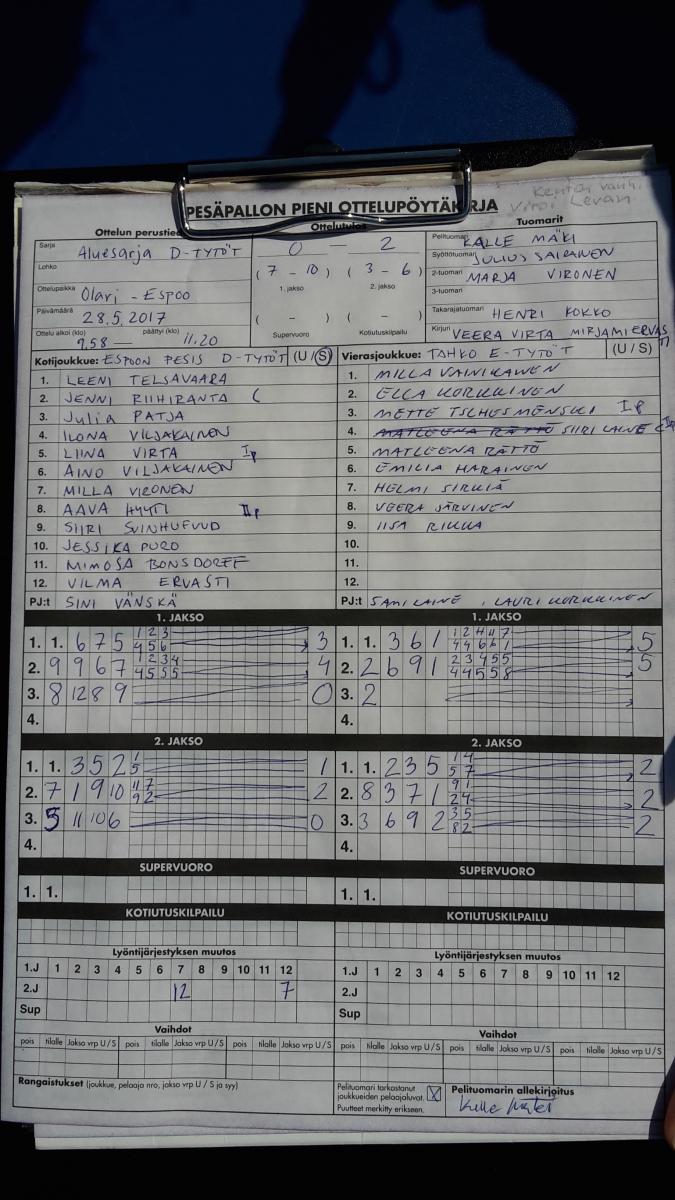 PESÄPALLON PIENI OTTELUPÖYTÄKIRJA
Ottelun perustiedot
Sarja Aluesarja D-TYTÖT
Lohko
Ottelupaikka Olari - Espoo
Päivämäärä 28.5.2017
Ottelu alkoi (klo) päättyi (klo)
9.58 — 11.20
Ottelutulos
0 — 2
( 7 - 10 ) ( 3 - 6 )
1. jakso 2. jakso
( - ) ( - )
Supervuoro Kotiutuskilpailu
Tuomarit
Pelituomari KALLE MÄKI
Syöttötuomari JULIUS SAIRANEN
2-tuomari MARJA VIRONEN
3-tuomari
Takarajatuomari HENRI KOKKO
Kirjuri VEERA VIRTA MIRJAMI ERVASTI
Kotijoukkue: ESPOON PESIS D-TYTÖT (U/S)
1. LEENI TELSAVAARA
2. JENNI RIIHIRANTA C
3. Julia PATJA
4. ILONA VILJAKAINEN
5. LIINA VIRTA Ip
6. AINO VILJAKAINEN
7. MILLA VIRONEN
8. AAVA HYYTI IIp
9. SIIRI SVINHUFVUD
10. JESSIKA PURO
11. MIMOSA BONSDORFF
12. VILMA ERVASTI
PJ:t SINI VÄNSKÄ
Vierasjoukkue: TAHKO E-TYTÖT (U/S)
1. MILLA VAINIKAINEN
2. ELLA KORKKINEN
3. METTE TSCHESMENSKI Ip
4. MATLEENA RÄTTÖ SIIRI LAINE C IIp
5. MATLEENA RÄTTÖ
6. EMILIA HARAINEN
7. HELMI SIRKIÄ
8. VEERA JÄRVINEN
9. IISA RIKKA
10.
11.
12.
PJ:t SAMI LAINE, LAURI KORKKINEN
1. JAKSO
1. 1. 6 7 5 1 2 3 4 5 6 3
2. 9 9 6 7 1 2 3 4 4 5 5 5 4
3. 8 12 8 9 0
4.
1. JAKSO
1. 1. 3 6 1 1 2 4 4 7 4 4 6 6 1 5
2. 2 6 9 1 2 3 4 5 5 4 4 5 5 8 5
3. 2
4.
2. JAKSO
1. 1. 3 5 2 1 5 1
2. 7 1 9 10 11 7 9 2 2
3. 5 11 10 6 0
4.
2. JAKSO
1. 1. 2 3 5 1 4 5 7 2
2. 8 3 7 1 9 1 2 4 2
3. 3 6 9 2 3 5 8 2 2
4.
SUPERVUORO
1. 1.
SUPERVUORO
1. 1.
KOTIUTUSKILPAILU
KOTIUTUSKILPAILU
Lyöntijärjestyksen muutos
1.J 1 2 3 4 5 6 7 8 9 10 11 12
2.J 12 7
Sup
Lyöntijärjestyksen muutos
1.J 1 2 3 4 5 6 7 8 9 10 11 12
2.J
Sup
Vaihdot
pois tilalle Jakso vrp U/S pois tilalle Jakso vrp U/S pois tilalle Jakso vrp U/S
Vaihdot
pois tilalle Jakso vrp U/S pois tilalle Jakso vrp U/S pois tilalle Jakso vrp U/S
Rangaistukset (joukkue, pelaaja nro, jakso vrp U / S ja syy)
Pelituomari tarkastanut
joukkueiden pelaajaluvat. X
Puutteet merkitty erikseen.
Pelituomarin allekirjoitus
Kalle Mäki